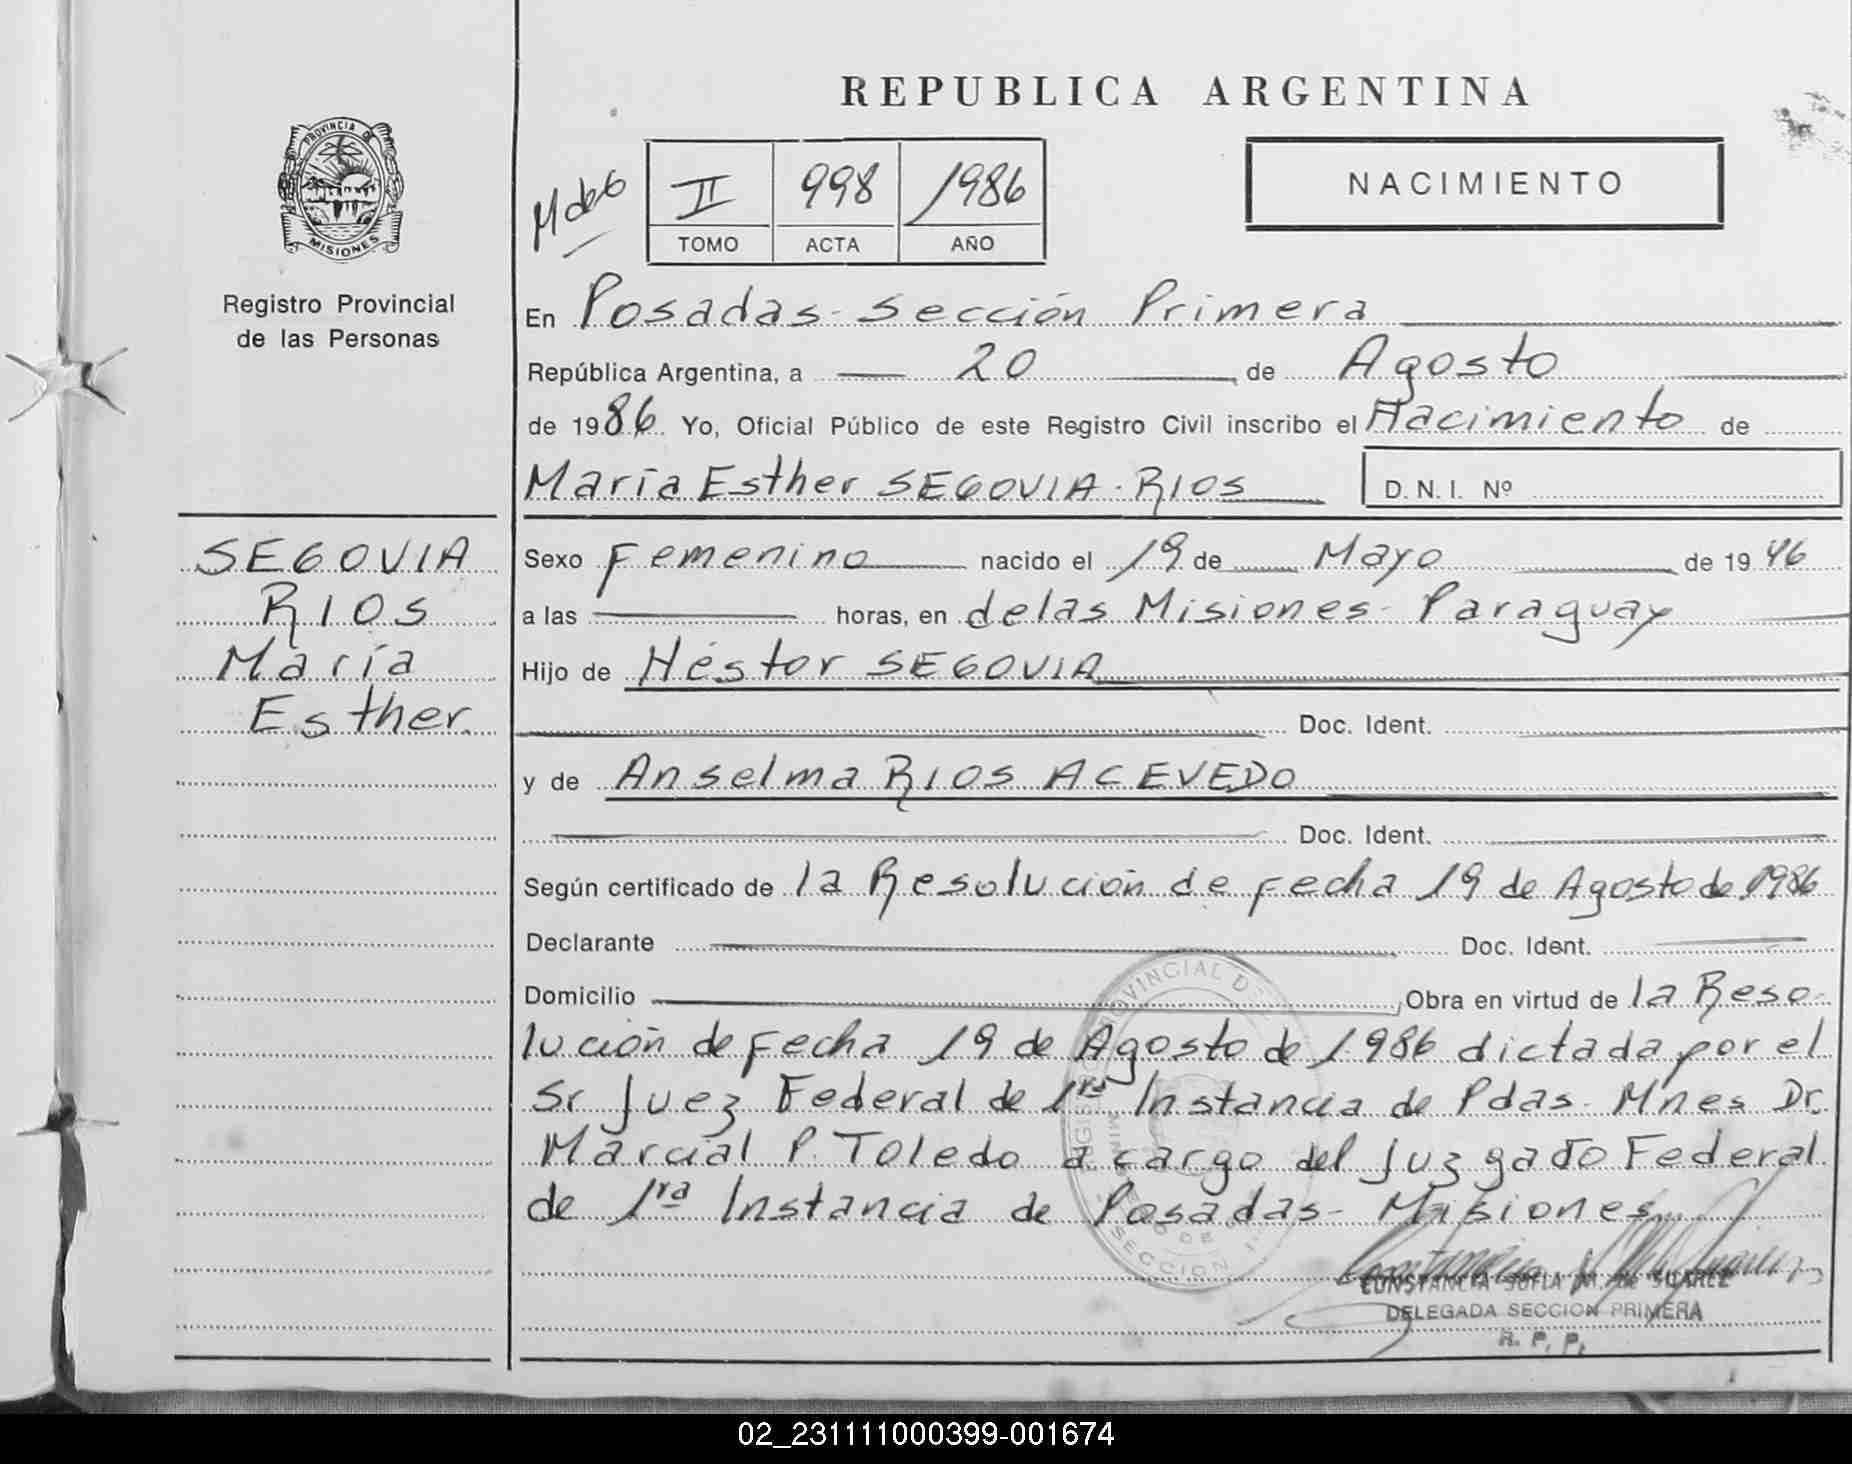 REPUBLICA ARGENTINA
PROVINCIA DE
MISIONES
Registro Provincial
de las Personas
II 998 1986
TOMO ACTA AÑO
NACIMIENTO
En Posadas - Sección Primera
República Argentina, a 20 de Agosto
de 1986 Yo, Oficial Público de este Registro Civil inscribo el Nacimiento de
María Esther SEGOVIA - RIOS D.N.I. Nº
SEGOVIA
RIOS
María
Esther.
Sexo Femenino nacido el 19 de Mayo de 1946
a las horas, en delas Misiones - Paraguay
Hijo de Héstor SEGOVIA
Doc. Ident.
y de Anselma RIOS ACEVEDO
Doc. Ident.
Según certificado de la Resolución de fecha 19 de Agosto de 1986
Declarante Doc. Ident.
Domicilio Obra en virtud de la Reso-
lución de fecha 19 de Agosto de 1986 dictada por el
Sr Juez Federal de 1ra Instancia de Pdas. Mnes Dr.
Marcial P. Toledo a cargo del Juzgado Federal
de 1ra Instancia de Posadas - Misiones
CONSTANCIA SOFIA M. de SUAREZ
DELEGADA SECCION PRIMERA
R. P. P.
02_231111000399-001674